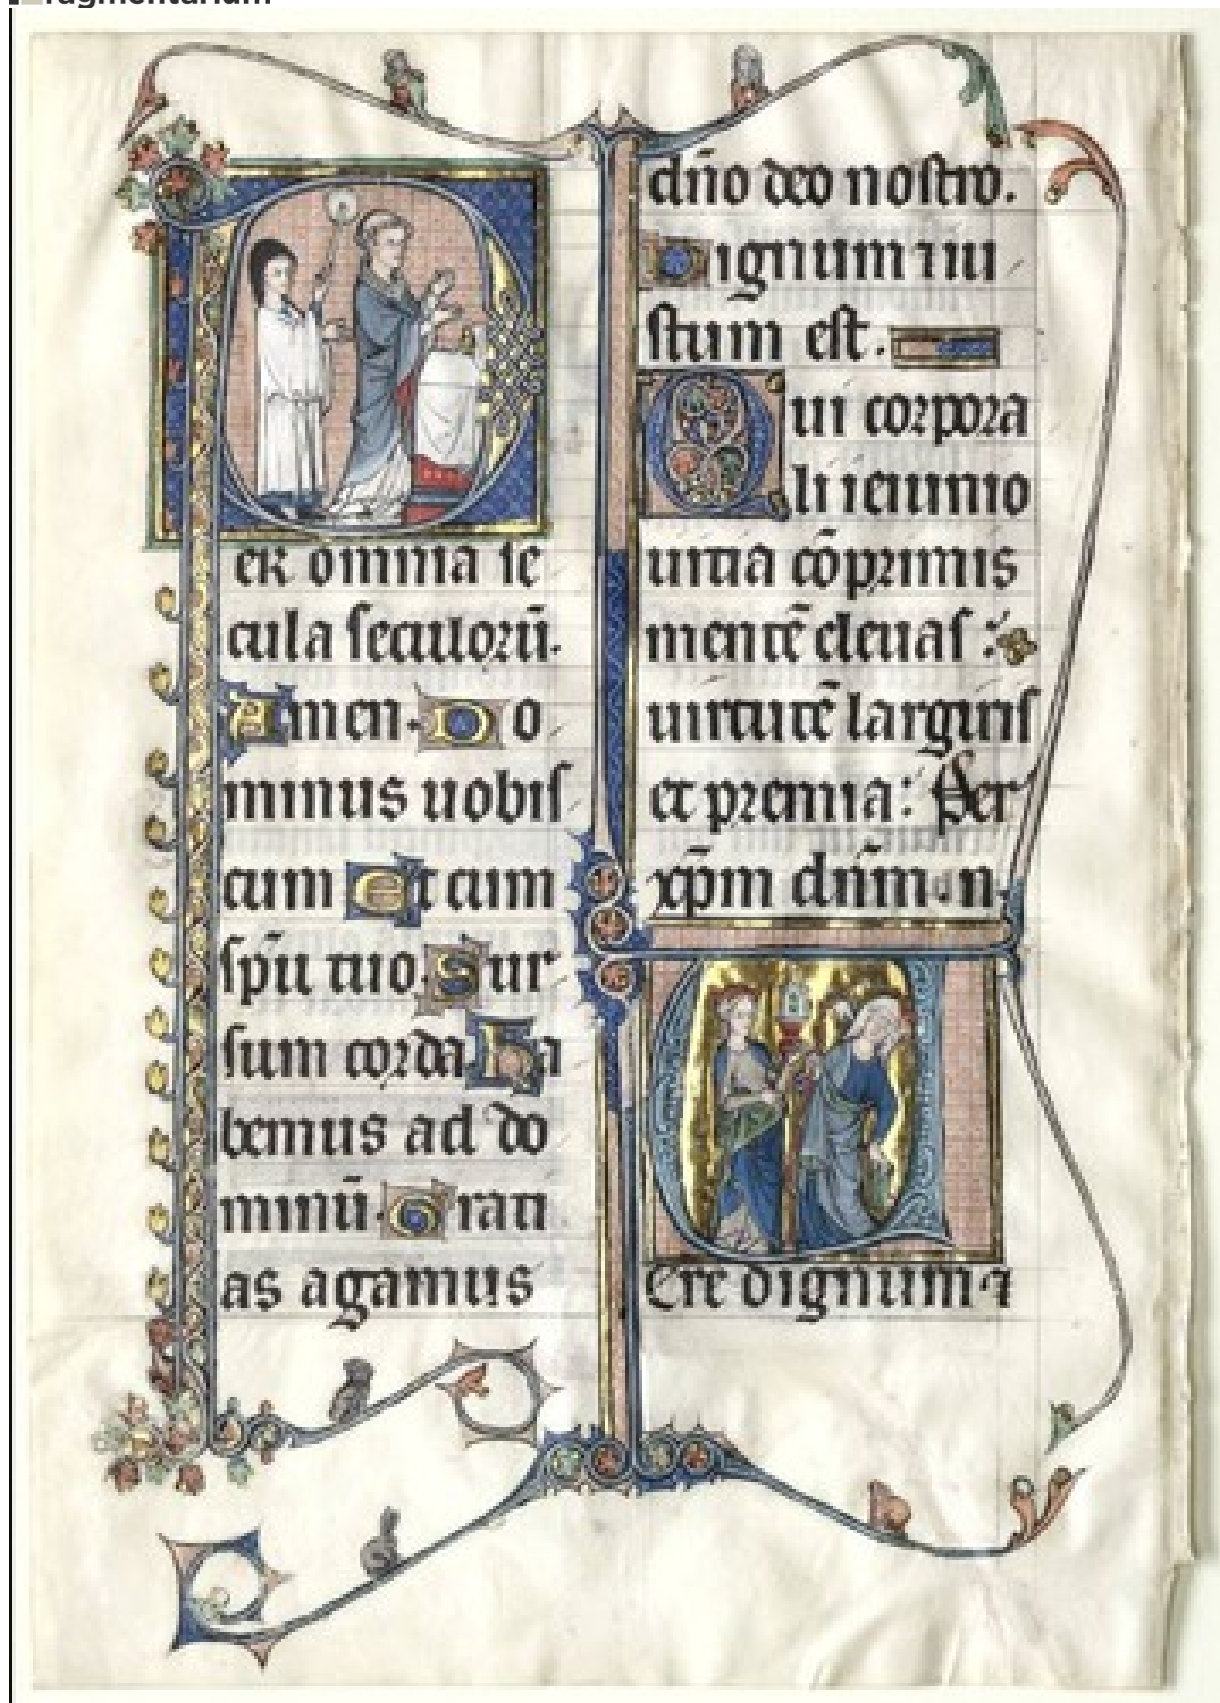 Fragmentarium
er omnia se
cula seculoꝝ̄.
Amen. Do
minus uobiſ
cum Et cum
ſpū tuo. Sur
sum corda. ha
bemus ad do
minū. Grati
as agamus
dn̄o deo noſtro.
Dignum ⁊ iu
ſtum eſt.
Qui corpora
li ieiunio
uitia cōprimis
mentē eleuaſ :
uirtutē largiriſ
et premia: Per
xp̄m dn̄m. n.
Ere dignum ⁊